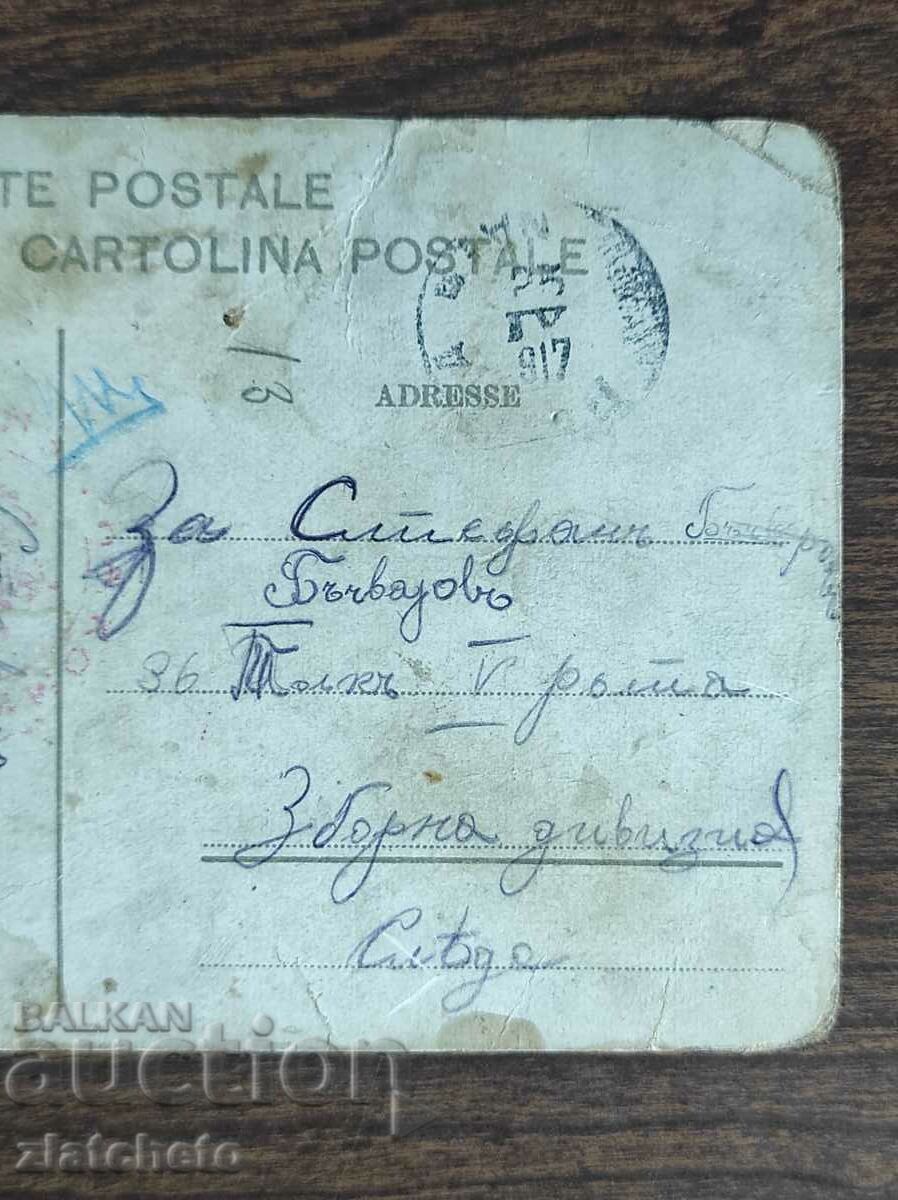 TE POSTALE
CARTOLINA POSTALE
917
13
ADRESSE
За Стефанъ
Бъчваровъ
36 Полкъ V рота
Зборна дивизия
BALKAN
auction
zlatcheto